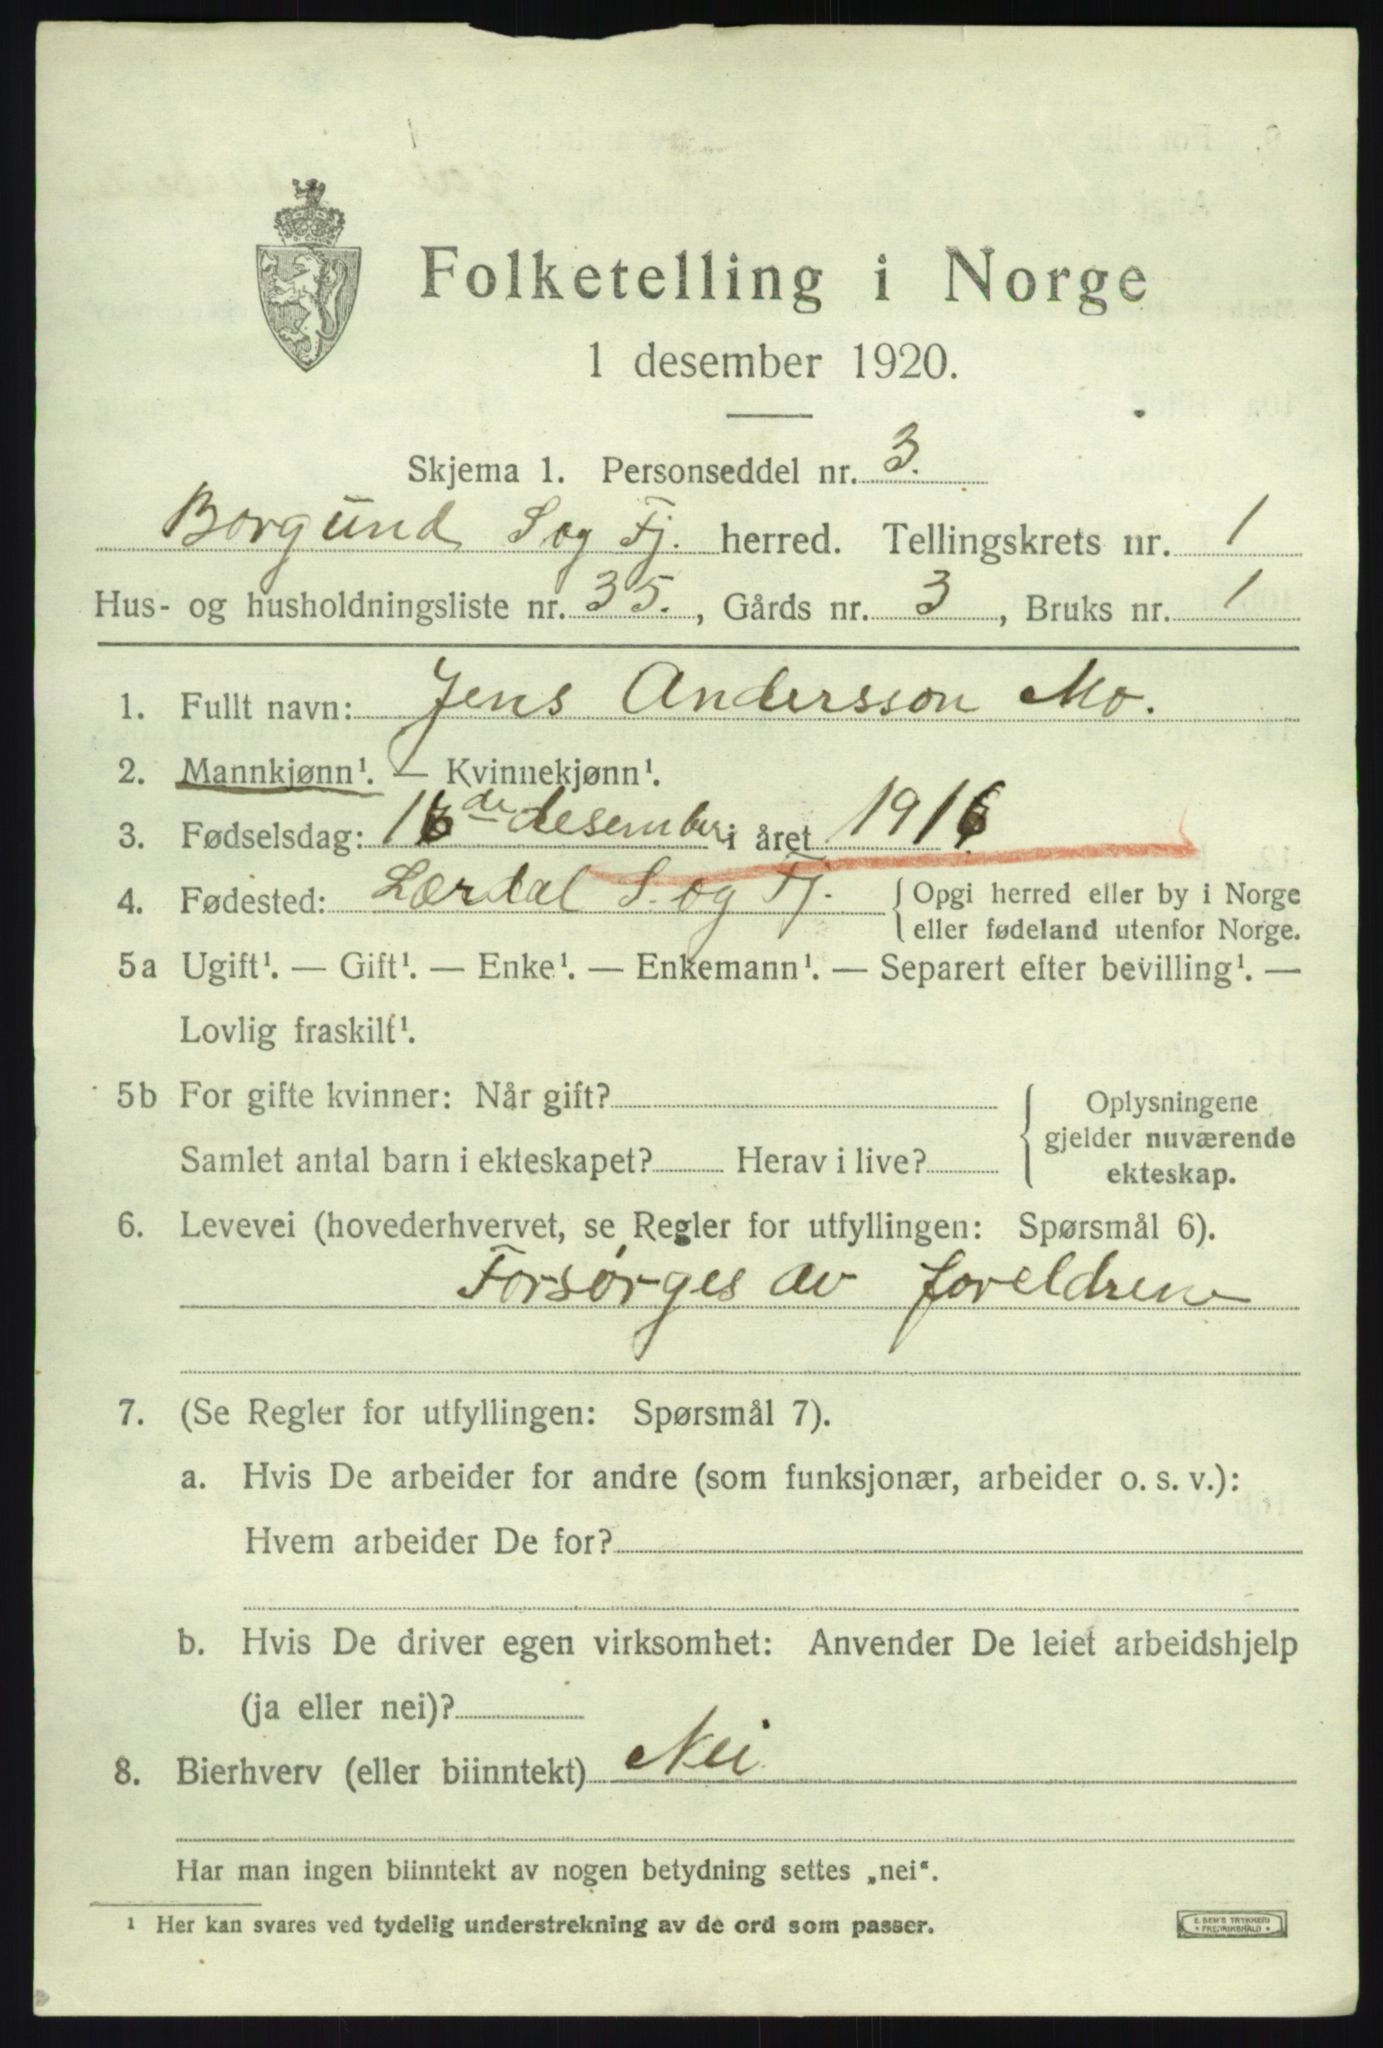 Folketelling i Norge
1 desember 1920.
Skjema 1. Personseddel nr. 3.
Borgund S og Fj. herred. Tellingskrets nr. 1
Hus- og husholdningsliste nr. 35., Gårds nr. 3, Bruks nr. 1
1. Fullt navn: Jens Andersson Mo.
2. Mannkjønn¹. — Kvinnekjønn¹.
3. Fødselsdag: 16 de desember i året 1916
4. Fødested: Lærdal S. og Fj. { Opgi herred eller by i Norge
eller fødeland utenfor Norge.
5a Ugift¹. — Gift¹. — Enke¹. — Enkemann¹. — Separert efter bevilling¹. —
Lovlig fraskilt¹.
5b For gifte kvinner: Når gift?
Samlet antal barn i ekteskapet? Herav i live?
{ Oplysningene
gjelder nuværende
ekteskap.
6. Levevei (hovederhvervet, se Regler for utfyllingen: Spørsmål 6).
Forsørges av foreldrene
7. (Se Regler for utfyllingen: Spørsmål 7).
a. Hvis De arbeider for andre (som funksjonær, arbeider o. s. v.):
Hvem arbeider De for?
b. Hvis De driver egen virksomhet: Anvender De leiet arbeidshjelp
(ja eller nei)?
8. Bierhverv (eller biinntekt) Nei
Har man ingen biinntekt av nogen betydning settes „nei“.
¹ Her kan svares ved tydelig understrekning av de ord som passer.
E. SEM'S TRYKKERI
FREDRIKSHALD